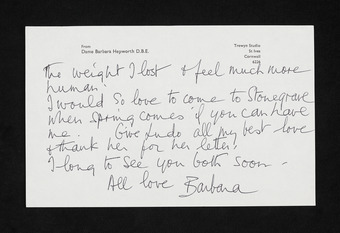 from
Dame Barbara Hepworth D.B.E.
Trewyn Studio
St Ives
Cornwall
The weight I lost & feel much more
human!
I would so love to come to Stonegrave
when spring comes if you can have
me. Give Ludo all my best love
& thank her for her letter.
I long to see you both soon -
All love Barbara